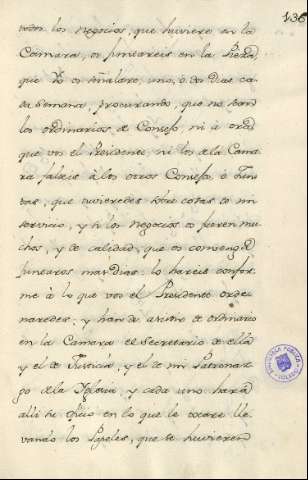 136
todos los negocios, que huviere en la
Camara, os juntareis en la Pieza,
que Yo os señalare, uno, o dos dias ca
da Semana, procurando, que no sean
los ordinarios de Consejo, ni a oras
que vos el Presidente, ni los de la Cama
ra falteis à los otros Consejos, ò Jun
tas, que tuvieredes sobre cosas de mi
servicio, y si los negocios os fueren mu
chos, y de calidad, que os convenga
juntaros mas dias lo hareis confor
me à lo que vos el Presidente orde
naredes, y han de asistir de ordinario
en la Camara el Secretario de ella
y el de Justicia, y el de mi Patronaz
go de la Iglesia, y cada uno hará
alli su oficio en lo que le tocare lle
vando los Papeles, que se huvieren
BIBLIOTECA PUBLICA
TOLEDO